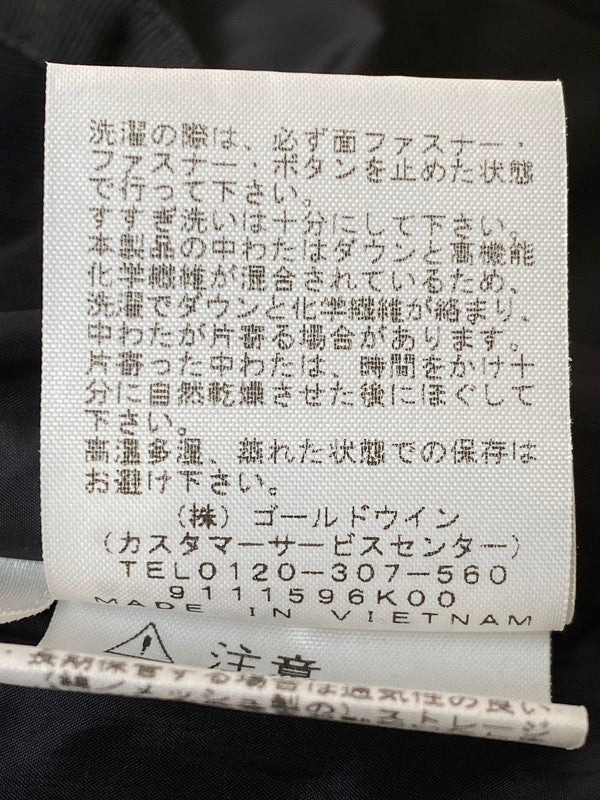 洗濯の際は、必ず面ファスナー・
ファスナー・ボタンを止めた状態
で行って下さい。
すすぎ洗いは十分にして下さい。
本製品の中わたはダウンと高機能
化学繊維が混合されているため、
洗濯でダウンと化学繊維が絡まり、
中わたが片寄る場合があります。
片寄った中わたは、時間をかけ十
分に自然乾燥させた後にほぐして
下さい。
高温多湿、蒸れた状態での保存は
お避け下さい。
(株)ゴールドウイン
(カスタマーサービスセンター)
TEL0120-307-560
9111596K00
MADE IN VIETNAM
注意
・長期保管する場合は通気性の良い
メッシュ製の)ストレージ